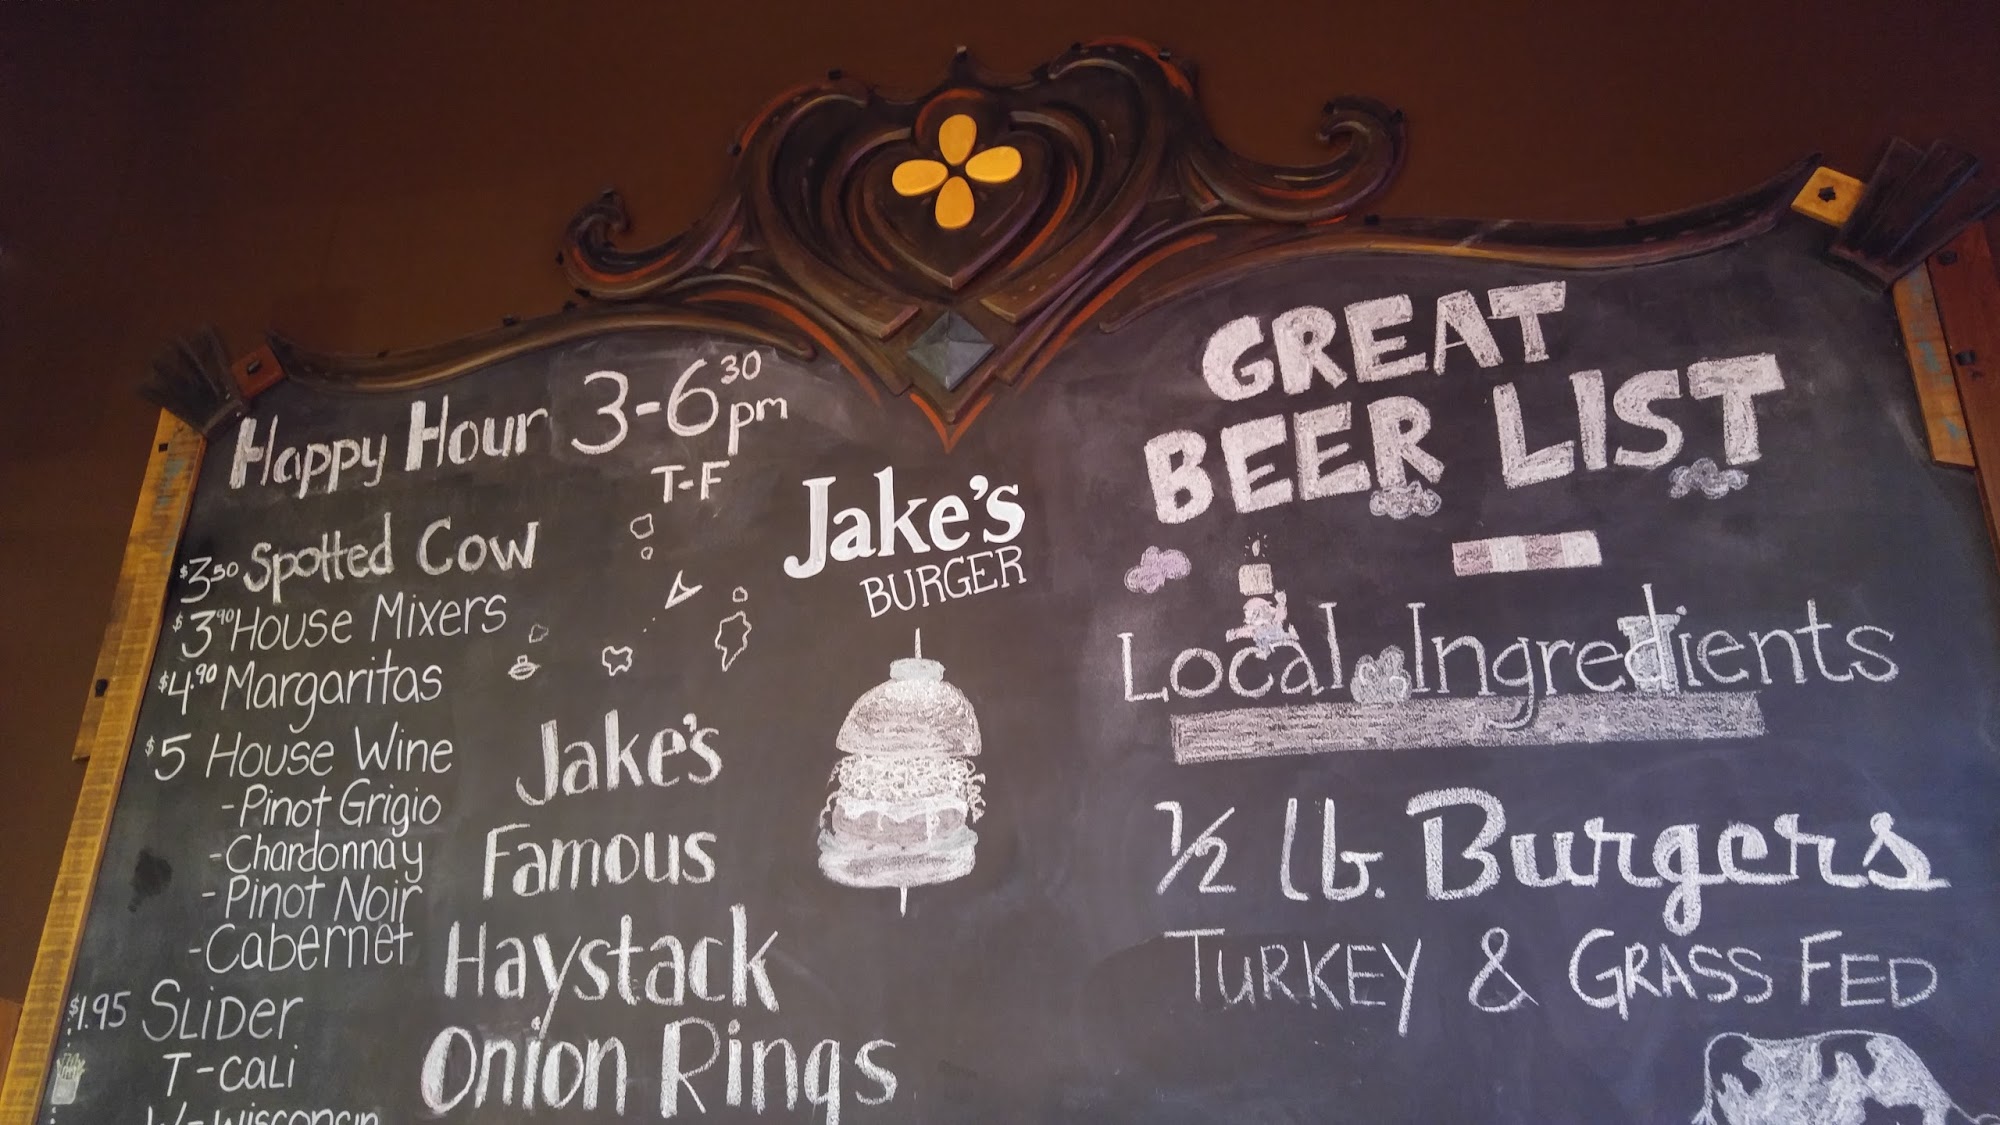 Happy Hour 3-6³⁰ pm
T-F
$3⁵⁰ Spotted Cow
$3.⁹⁰ House Mixers
$4.⁹⁰ Margaritas
$5 House Wine
-Pinot Grigio
-Chardonnay
-Pinot Noir
-Cabernet
$1.95 SLiDer
T-CALi
W-Wisconsin
Jake's
Famous
Haystack
Onion Rings
Jake's
BURGER
GREAT
BEER LIST
Local Ingredients
1/2 lb. Burgers
TURKEY & GRASS FED